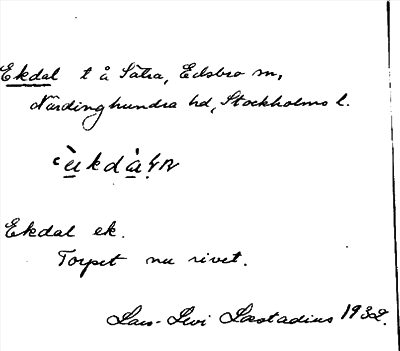 Ekdal t å Sätra, Edsbro sn,
Närdinghundra hd, Stockholms l.
Ekdal ek.
Torpet nu rivet.
Lars-Levi Læstadius 1932.